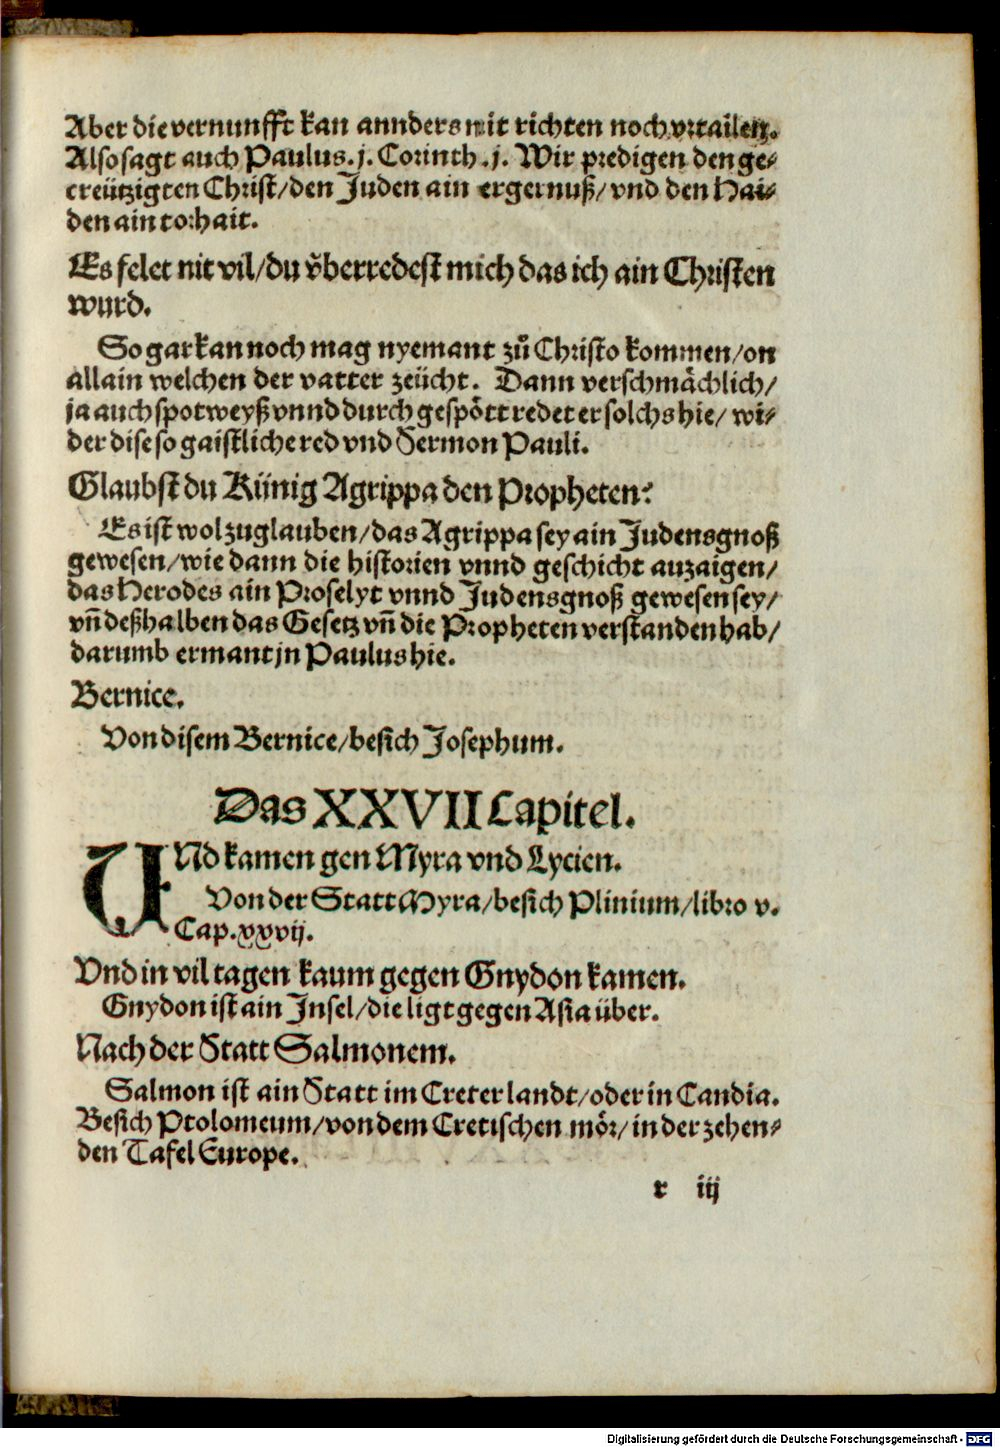 Aber die vernunfft kan annders nit richten noch vrtailen.
Also sagt auch Paulus. j. Corinth. j. Wir predigen den ge⸗
creützigten Christ/den Juden ain ergernuß/ vnd den Hai⸗
den ain torhait.
Es felet nit vil/du vͤberredest mich das ich ain Christen
wurd.
So gar kan noch mag nyemant zuͦ Christo kommen/on
allain welchen der vatter zeücht. Dann verschmaͤchlich/
ja auch spotweyß vnnd durch gespoͤtt redet er solchs hie/ wi⸗
der dise so gaistliche red vnd Sermon Pauli.
Glaubst du Künig Agrippa den Propheten?
Es ist wol zuglauben/das Agrippa sey ain Judensgnoß
gewesen/wie dann die historien vnnd geschicht anzaigen/
das Herodes ain Proselyt vnnd Judensgnoß gewesen sey/
vn̄ deßhalben das Gesetz vn̄ die Propheten verstanden hab/
darumb ermant jn Paulus hie.
Bernice.
Von disem Bernice/besich Josephum.
Das XXVII Capitel.
VNd kamen gen Myra vnd Lycien.
Von der Statt Myra/besich Plinium/libro v.
Cap. xxvij.
Vnd in vil tagen kaum gegen Gnydon kamen.
Gnydon ist ain Insel/die ligt gegen Asia über.
Nach der Statt Salmonem.
Salmon ist ain Statt im Creter landt/oder in Candia.
Besich Ptolomeum/von dem Cretischen moͤr/ in der zehen⸗
den Tafel Europe.
r iij
Digitalisierung gefördert durch die Deutsche Forschungsgemeinschaft - DFG